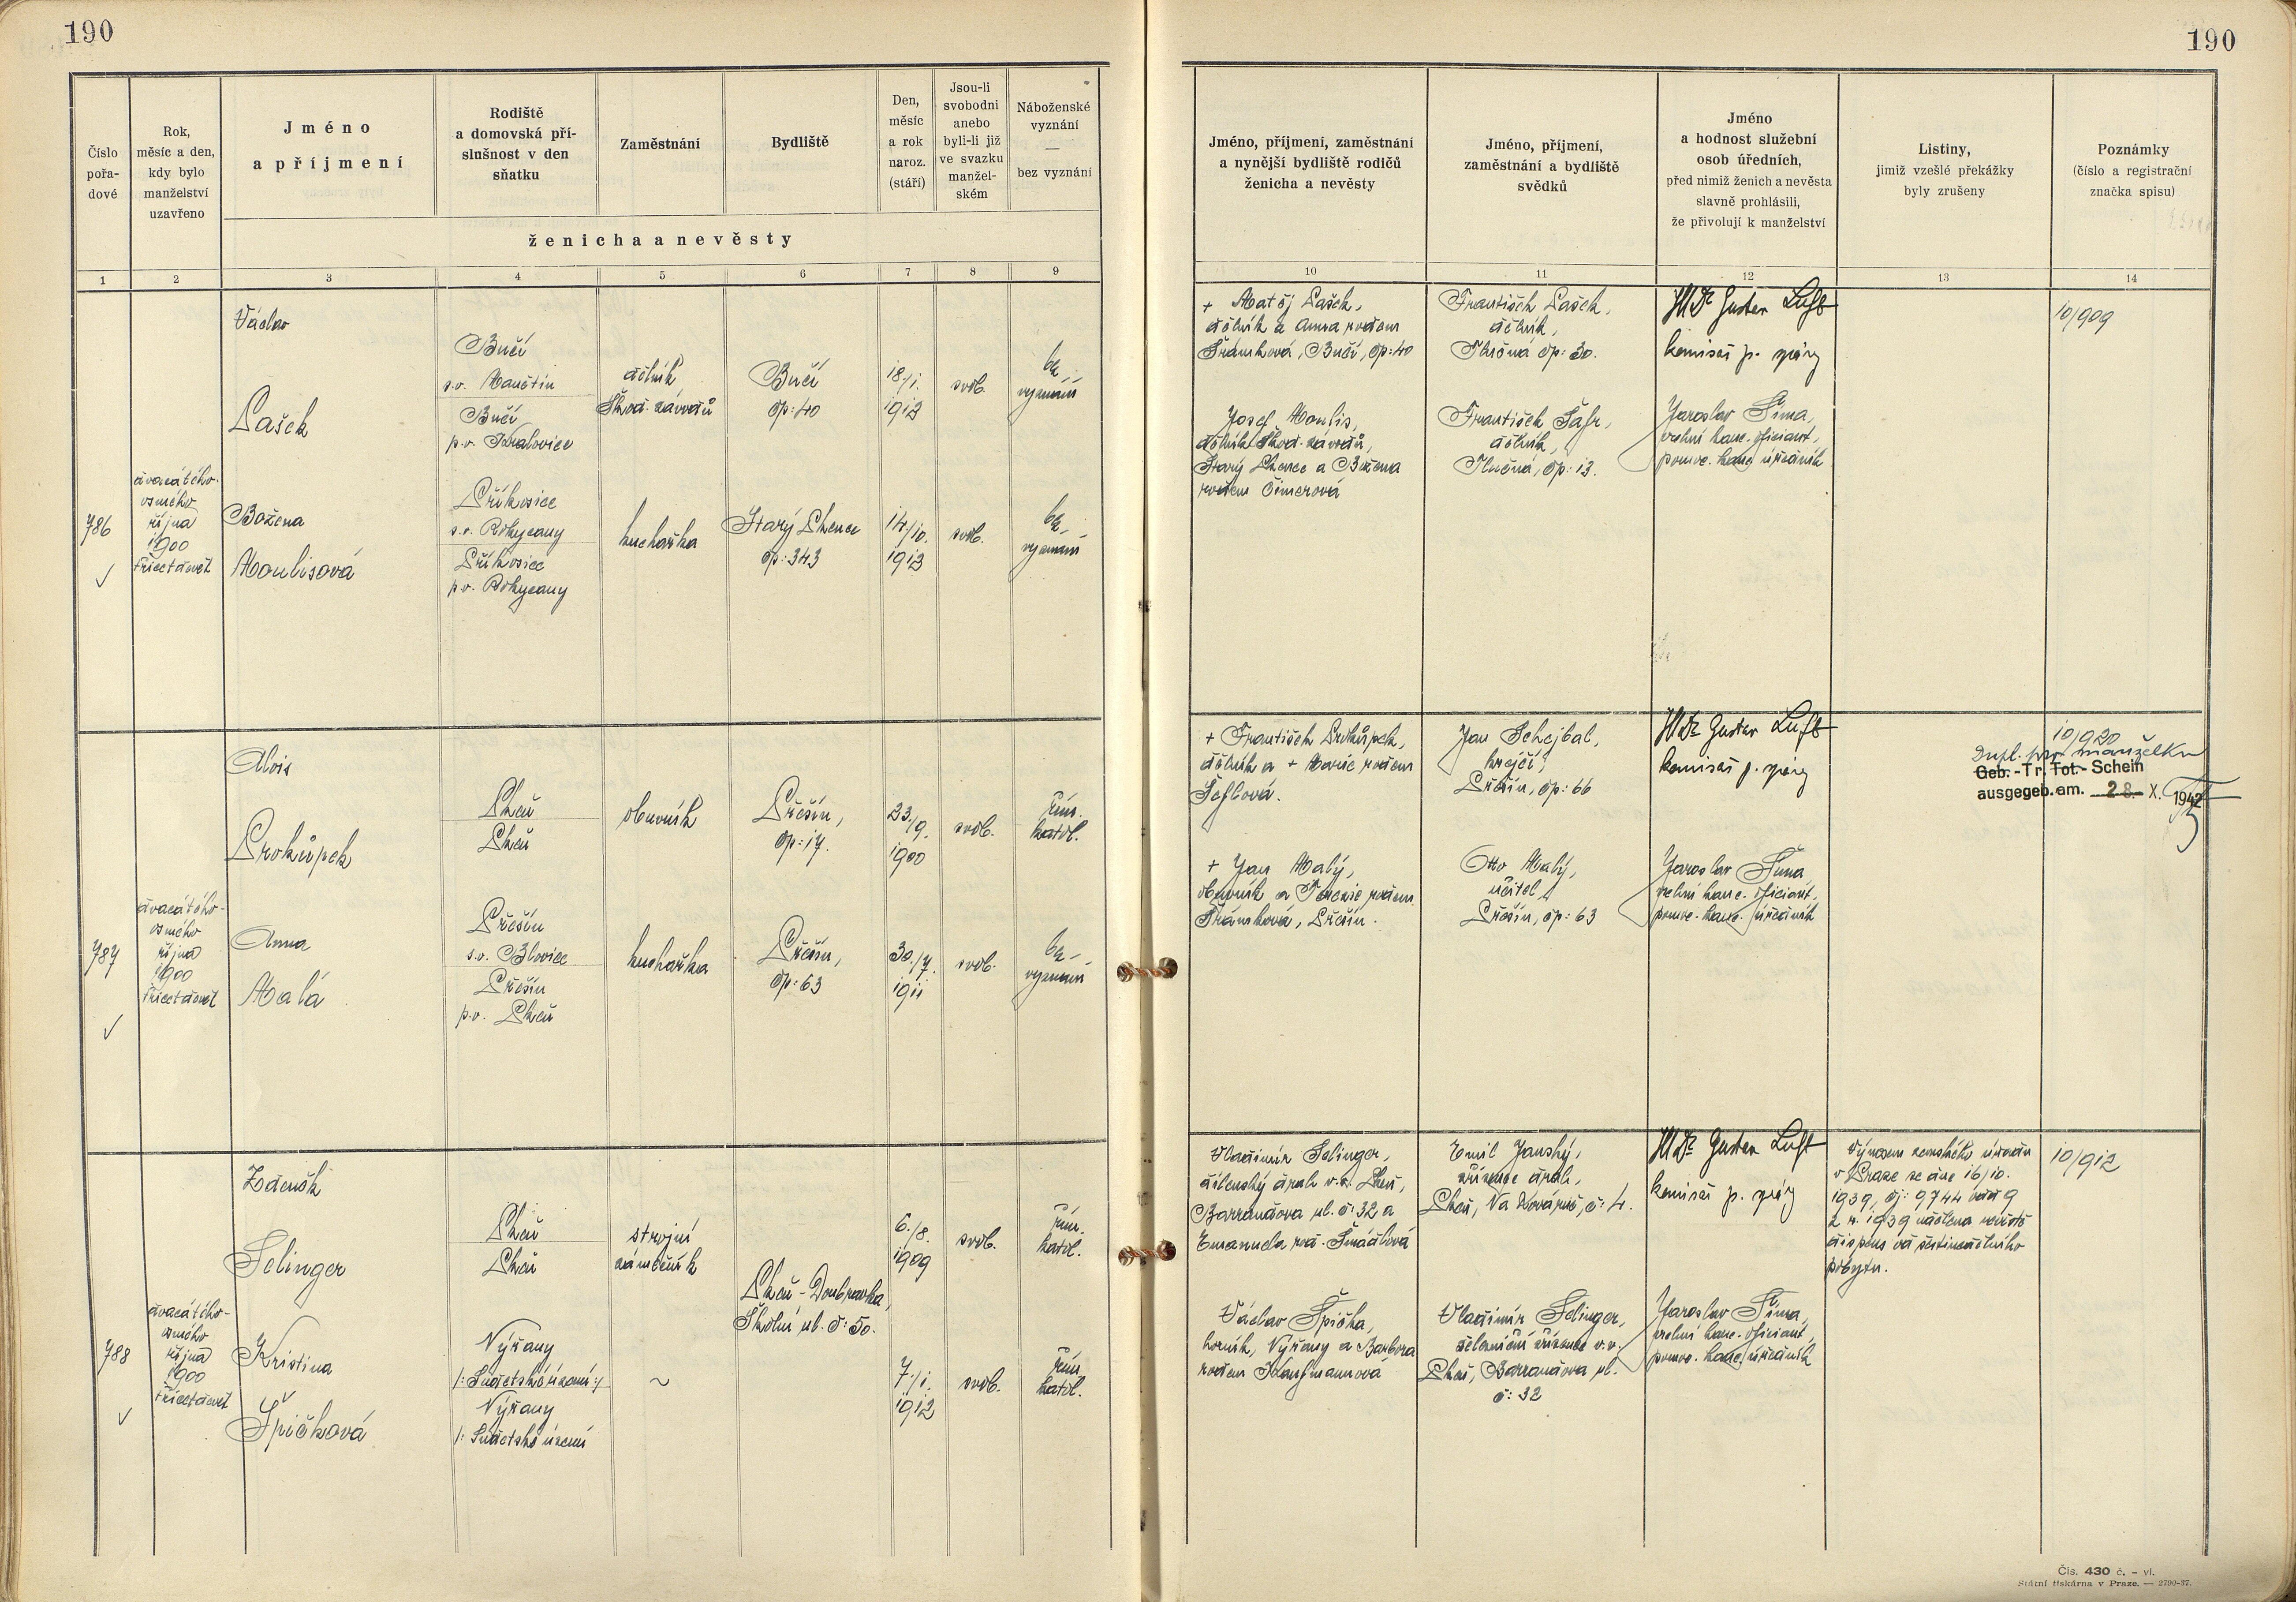 190
190
Číslo pořa- dové
Rok, měsíc a den, kdy bylo manželství uzavřeno
Jméno a příjmení
Rodiště a domovská pří- slušnost v den sňatku
Zaměstnání
Bydliště
Den, měsíc a rok naroz. (stáří)
Jsou-li svobodni anebo byli-li již ve svazku manžel- ském
Náboženské vyznání — bez vyznání
ženicha a nevěsty
Jméno, příjmení, zaměstnání a nynější bydliště rodičů ženicha a nevěsty
Jméno, příjmení, zaměstnání a bydliště svědků
Jméno a hodnost služební osob úředních, před nimiž ženich a nevěsta slavně prohlásili, že přivolují k manželství
Listiny, jimiž vzešlé překážky byly zrušeny
Poznámky (číslo a registrační značka spisu)
1 2 3 4 5 6 7 8 9 10 11 12 13 14
786
dvacátého-
osmého
října
1900
třicetdevět
Václav
Lašek
Bučí
s.o. Manětín
Bučí
p.o. Kralovice
dělník
Škod. závodů
Bučí
čp: 40
18./1.
1912
svob.
bez
vyznání
Božena
Moulisová
Příkosice
s.o. Rokycany
Příkosice
p.o. Rokycany
kuchařka
Starý Plzenec
čp: 343
14./10.
1913
svob.
bez
vyznání
+ Matěj Lašek,
dělník a Anna rodem
Šrámková, Bučí, čp: 40
Josef Moulis,
dělník Škod. závodů,
Starý Plzenec a Božena
rodem Cimerová
František Lašek,
dělník,
Tlučná čp: 30.
František Šafr,
dělník,
Tlučná, čp: 13.
JUDr Gustav Luft
komisař p. správy
Jaroslav Šíma,
vrchní kanc. oficiant,
pomoc. kanc. úředník
10/909
787
dvacátého-
osmého
října
1900
třicetdevět
Alois
Prokůpek
Plzeň
Plzeň
obuvník
Přešín,
čp: 17.
23./9.
1900
svob.
řím.
katol.
Anna
Malá
Přešín
s.o. Blovice
Přešín
p.o. Plzeň
kuchařka
Přešín,
čp: 63
30./7.
1911
svob.
bez
vyznání
+ František Prokůpek,
dělník a + Marie rodem
Šeflová.
+ Jan Malý,
obuvník a Terezie rodem
Šrámková, Přešín.
Jan Schejbal,
krejčí,
Přešín, čp: 66
Otto Malý,
učitel,
Přešín, čp: 63
JUDr Gustav Luft
komisař p. správy
Jaroslav Šíma,
vrchní kanc. oficiant,
pomoc. kanc. úředník
10/920
Dupl. pro manželku
Geb.-Tr.Tot.-Schein
ausgegeb.am. 28. X. 1942
788
dvacátého-
osmého
října
1900
třicetdevět
Zdeněk
Selinger
Plzeň
Plzeň
strojní
zámečník
Plzeň-Doubravka,
Školní ul. č: 50.
6./8.
1909
svob.
řím.
katol.
Kristina
Špičková
Výřany
/: Sudetské území :/
Výřany
/: Sudetské území
~
7./1.
1912
svob.
řím.
katol.
Vladimír Selinger,
dílenský drah v.v. Plzeň,
Barrandova ul. č: 32 a
Emanuela rod. Šmídlová
Václav Špička,
horník, Výřany a Barbora
rodem Kaufmannová
Emil Janský,
zřízenec drah,
Plzeň, Na Kovárně, č: 4.
Vladimír Selinger,
železniční zřízenec v.v.
Plzeň, Barrandova ul.
č: 32
JUDr Gustav Luft
komisař p. správy
Jaroslav Šíma,
vrchní kanc. oficiant,
pomoc. kanc. úředník
Výnosem zemského úřadu
v Praze ze dne 16/10.
1939, čj: 9744 odd 9
z r. 1939 udělena
dispens od šestinedělního
pobytu.
10/912
Čís. 430 č. - vl.
Státní tiskárna v Praze. — 2790-37.